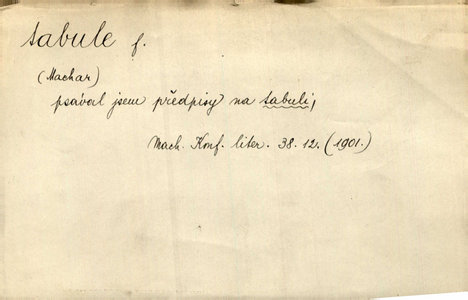 tabule f.
(Machar)
psával jsem předpisy na tabuli,
Mach. Konf. liter. 38. 12. (1901.)